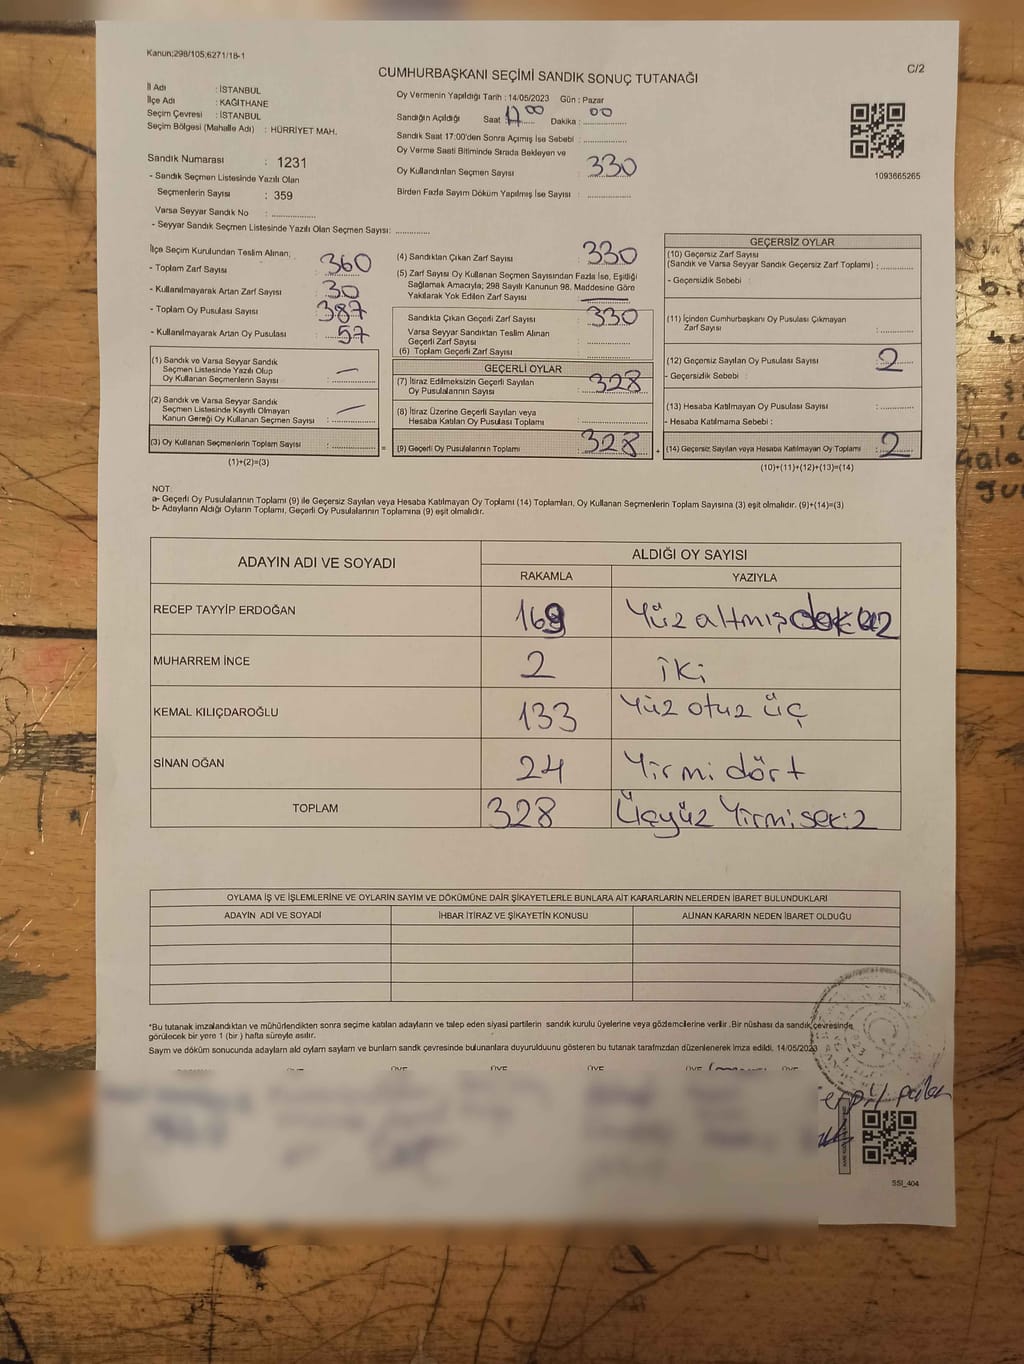 Kanun:298/105;6271/18-1
CUMHURBAŞKANI SEÇİMİ SANDIK SONUÇ TUTANAĞI
C/2
İl Adı : İSTANBUL
İlçe Adı : KAĞITHANE
Seçim Çevresi : İSTANBUL
Seçim Bölgesi (Mahalle Adı) : HÜRRİYET MAH.
Sandık Numarası : 1231
- Sandık Seçmen Listesinde Yazılı Olan
Seçmenlerin Sayısı : 359
Varsa Seyyar Sandık No : ..............
- Seyyar Sandık Seçmen Listesinde Yazılı Olan Seçmen Sayısı: ............
Oy Vermenin Yapıldığı Tarih : 14/05/2023 Gün : Pazar
Sandığın Açıldığı Saat : 17 00 Dakika : 00
Sandık Saat 17:00'den Sonra Açımış İse Sebebi : ..............
Oy Verme Saati Bitiminde Sırada Bekleyen ve
Oy Kullandırılan Seçmen Sayısı : 330
Birden Fazla Sayım Döküm Yapılmış İse Sayısı : ..............
1093665265
İlçe Seçim Kurulundan Teslim Alınan;
- Toplam Zarf Sayısı : 360
- Kullanılmayarak Artan Zarf Sayısı : 30
- Toplam Oy Pusulası Sayısı : 387
- Kullanılmayarak Artan Oy Pusulası : 57
(1) Sandık ve Varsa Seyyar Sandık
Seçmen Listesinde Yazılı Olup
Oy Kullanan Seçmenlerin Sayısı : —
(2) Sandık ve Varsa Seyyar Sandık
Seçmen Listesinde Kayıtlı Olmayan
Kanun Gereği Oy Kullanan Seçmen Sayısı : —
(3) Oy Kullanan Seçmenlerin Toplam Sayısı : .............. =
(1)+(2)=(3)
(4) Sandıktan Çıkan Zarf Sayısı : 330
(5) Zarf Sayısı Oy Kullanan Seçmen Sayısından Fazla İse, Eşitliği
Sağlamak Amacıyla; 298 Sayılı Kanunun 98. Maddesine Göre
Yakılarak Yok Edilen Zarf Sayısı : —
Sandıkta Çıkan Geçerli Zarf Sayısı : 330
Varsa Seyyar Sandıktan Teslim Alınan
Geçerli Zarf Sayısı : ..............
(6) Toplam Geçerli Zarf Sayısı : ..............
GEÇERLİ OYLAR
(7) İtiraz Edilmeksizin Geçerli Sayılan
Oy Pusulalarının Sayısı : 328
(8) İtiraz Üzerine Geçerli Sayılan veya
Hesaba Katılan Oy Pusulası Toplamı : ..............
(9) Geçerli Oy Pusulalarının Toplamı : 328 +
GEÇERSİZ OYLAR
(10) Geçersiz Zarf Sayısı
(Sandık ve Varsa Seyyar Sandık Geçersiz Zarf Toplamı) : ............
- Geçersizlik Sebebi :
(11) İçinden Cumhurbaşkanı Oy Pusulası Çıkmayan
Zarf Sayısı : ............
(12) Geçersiz Sayılan Oy Pusulası Sayısı : 2
- Geçersizlik Sebebi :
(13) Hesaba Katılmayan Oy Pusulası Sayısı : ............
- Hesaba Katılmama Sebebi :
(14) Geçersiz Sayılan veya Hesaba Katılmayan Oy Toplamı : 2
(10)+(11)+(12)+(13)=(14)
NOT:
a- Geçerli Oy Pusulalarının Toplamı (9) ile Geçersiz Sayılan veya Hesaba Katılmayan Oy Toplamı (14) Toplamları, Oy Kullanan Seçmenlerin Toplam Sayısına (3) eşit olmalıdır. (9)+(14)=(3)
b- Adayların Aldığı Oyların Toplamı, Geçerli Oy Pusulalarının Toplamına (9) eşit olmalıdır.
ADAYIN ADI VE SOYADI
ALDIĞI OY SAYISI
RAKAMLA YAZIYLA
RECEP TAYYİP ERDOĞAN 169 Yüz altmış dokuz
MUHARREM İNCE 2 iki
KEMAL KILIÇDAROĞLU 133 Yüz otuz üç
SİNAN OĞAN 24 Yirmi dört
TOPLAM 328 Üçyüz Yirmi sekiz
OYLAMA İŞ VE İŞLEMLERİNE VE OYLARIN SAYIM VE DÖKÜMÜNE DAİR ŞİKAYETLERLE BUNLARA AİT KARARLARIN NELERDEN İBARET BULUNDUKLARI
ADAYIN ADI VE SOYADI İHBAR İTİRAZ VE ŞİKAYETİN KONUSU ALINAN KARARIN NEDEN İBARET OLDUĞU
*Bu tutanak imzalandıktan ve mühürlendikten sonra seçime katılan adayların ve talep eden siyasi partilerin sandık kurulu üyelerine veya gözlemcilerine verilir .Bir nüshası da sandık çevresinde
görülecek bir yere 1 (bir ) hafta süreyle asılır.
Sayım ve döküm sonucunda adayların ald oyların sayların ve bunların sandk çevresinde bulunanlara duyurulduunu gösteren bu tutanak tarafmzdan düzenlenerek imza edildi. 14/05/2023
SSI_404